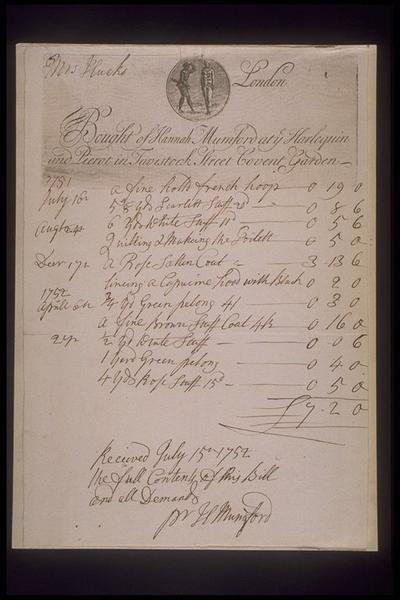 Mrs Hucks
London
Bought of Hannah Mumford at ye Harlequin
and Pierot in Tavistock Street Covent Garden
1751
July 16 a fine holld french hoop 0 19 0
Yds Scarlett Stuff 0 8 6
Augt 24 6 Yds White Stuff 11d 0 5 6
Quilting & Making the Toilett 0 5 0
Decr 17 a Rose Satten Coat 3 13 6
lineing a Capucine hood with Black 0 2 0
1752
Aprill 6th 3/4 Yd Green pelong 4/ 0 3 0
a fine Brown Stuff Coat 0 16 0
1/2 Yd White Stuff 0 0 6
1 Yard Green pelong 0 4 0
4 Yds Rose Stuff 15d 0 5 0
£7 2 0
Received July 15th 1752
the full Contents of this Bill
and all Demands
pr H Mumford